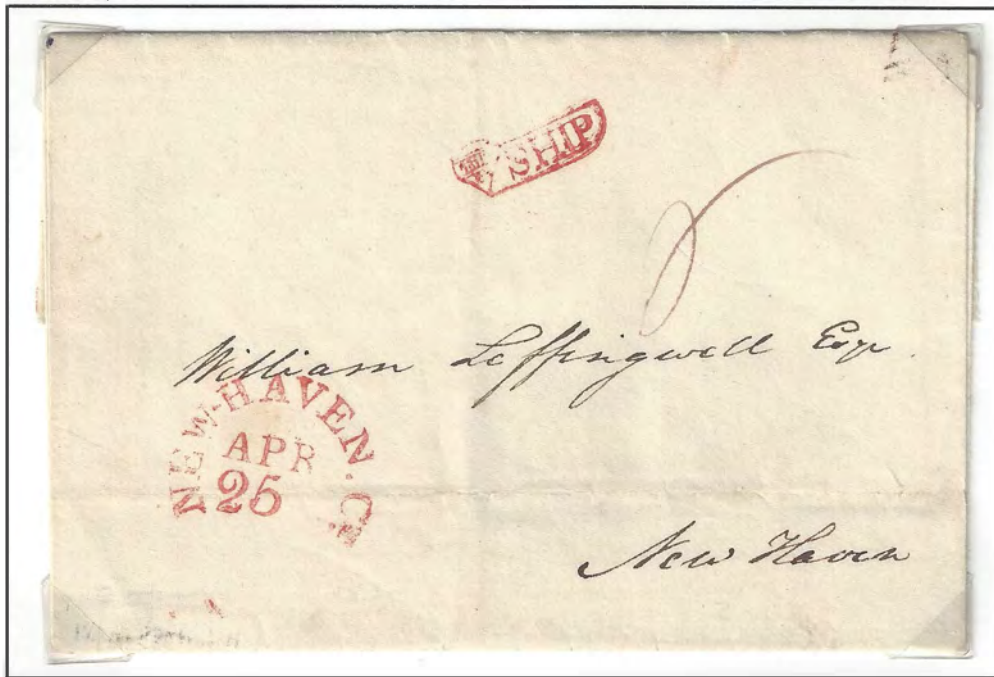 SHIP
6
William Leffingwell Esqr.
NEW-HAVEN. Ct.
APR
25
New Haven